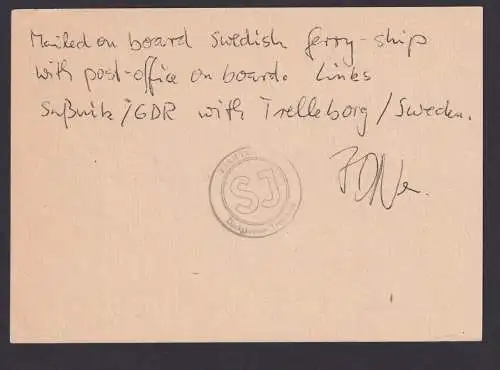 Mailed on board Swedish ferry-ship
with post-office on board. Links
Saßnitz/GDR with Trelleborg/Sweden.
SJ